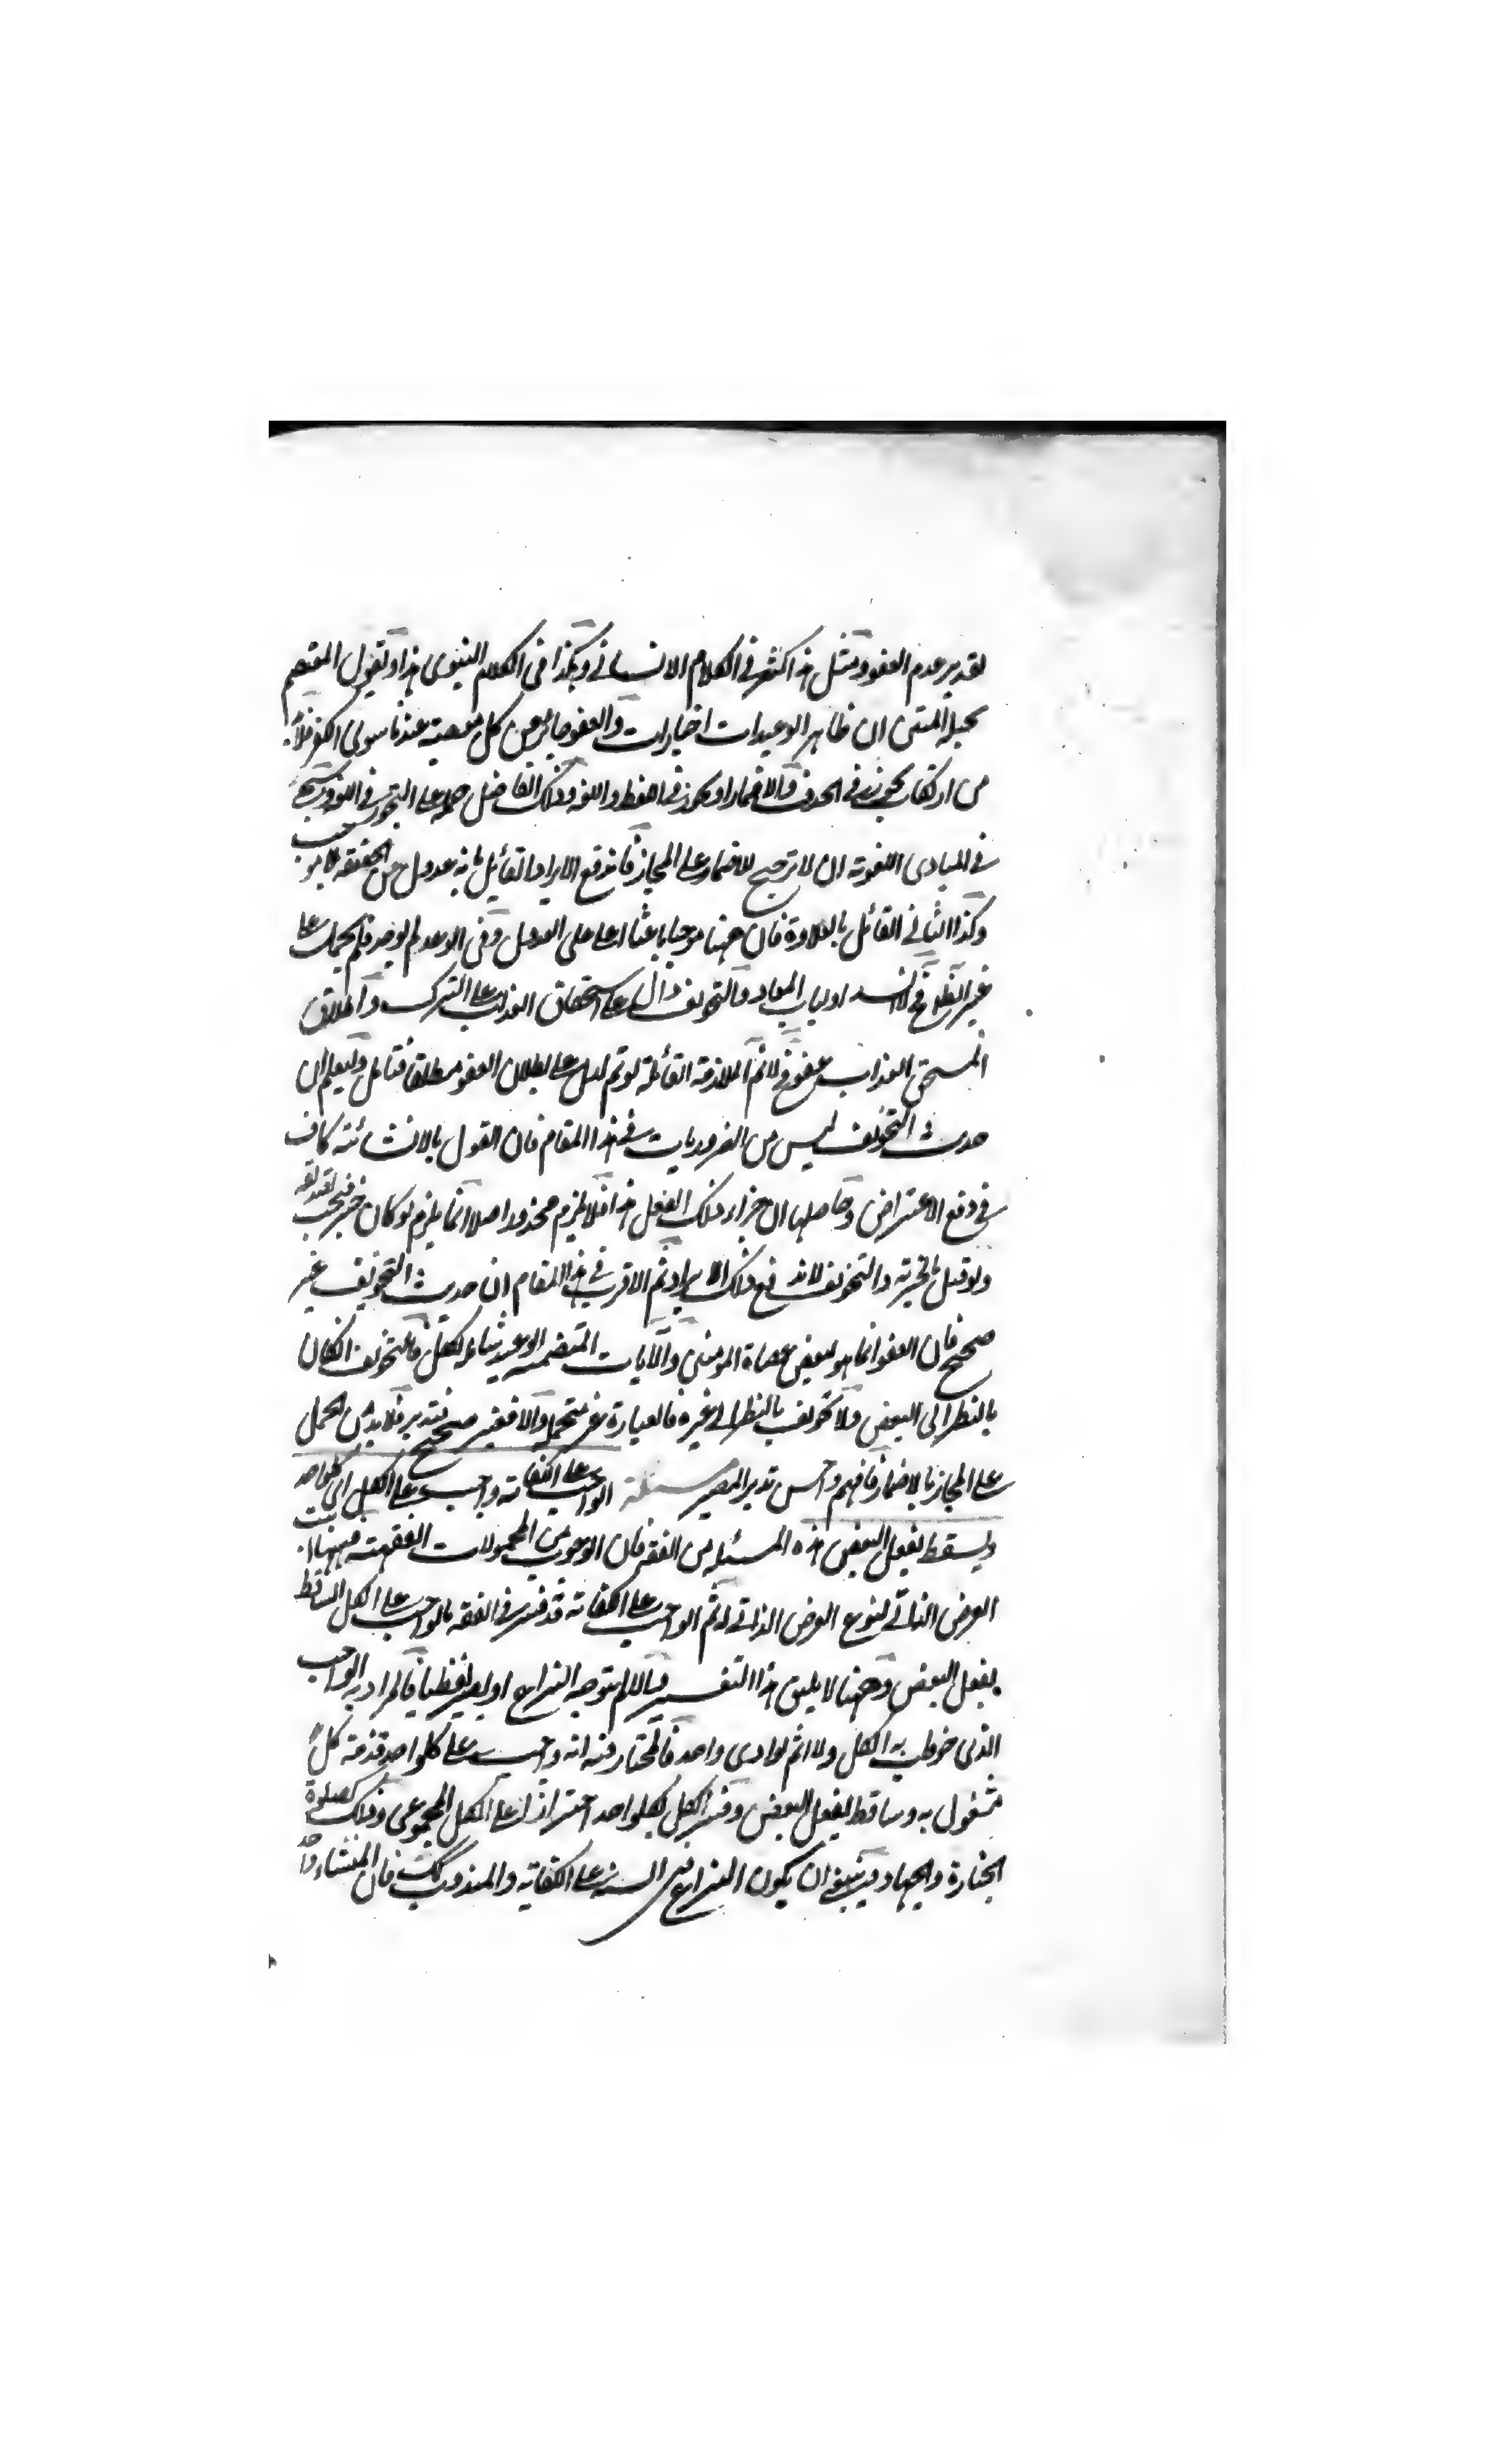 تقدير عدم العفو ومثل هذا كثير في الكلام الانساني وهكذا في الكلام النبوي هذا ونقول المعتصم
بحبله المتين ان ظاهر الوعيدات اخبارات والعفو جائز عن كل معصية عندنا سوى الكفر فلا بد
من ارتكاب تجوز في الحذف والاضمار او تجوز في اللفظ واللغة وذلك الفاضل حمله على التجوز في اللغة
في المبادي اللغوية ان لا ترجيح للاضمار على المجاز فاندفع الايراد القائل بانه عدول عن الحقيقة بلا موجب
وكذا الثاني القائل بالعلاوة فان ههنا موجبا باعثا على العدول وفي الوعد لم يوجد فلم يحمل على
غير الظاهر فلا ينسد ابواب المعاد والتخويف دال على استحقاق العذاب على الترك واطلاق
المستحق العذاب عفو فلا تتم الملازمة القائلة لو تم لدل على بطلان العفو مطلقا فتامل وليعلم ان
حديث التخويف ليس من الضروريات في هذا المقام فان القول بالانشائية كاف
في دفع الاعتراض وحاصلها ان جزاء ذلك الفعل هذا فلا يلزم محذور اصلا انما يلزم لو كان خبر فيجب تصديقه
ولو قيل بالخبرية والتخويف لاندفع ذلك الايراد ثم الاقرب في هذا المقام ان حديث التخويف غير
صحيح فان العفو انما هو لبعض عصاة المومنين والآيات المتضمنة الوعيد شاملة للكل فالتخويف ان كان
بالنظر الى البعض ولا تخويف بالنظر الى غيره فالعبارة غير متحملة والا فغير صحيح فتدبر فلا بد من الحمل
على المجاز بالاضمار فافهم واحسن تدبر المصير مسئلة الواجب على الكفاية واجب على الكل اي كل واحد
ويسقط بفعل البعض هذه المسئلة من الفقه فان الوجوب من المحمولات الفقهية فههنا اثبت
العرض الذاتي لنوع العرض الذاتي له ثم الواجب على الكفاية قد فسر في الفقه بالواجب على الكل الساقط
بفعل البعض وههنا لا يليق هذا التفسير والا لم يتوجه النزاع او يصير لفظيا فالمراد به الواجب
الذي خوطب به الكل ولا اثم لو ادى واحد فالمختار فيه انه واجب على كل واحد فذمة كل
مشغول به وساقط بفعل البعض وفسر الكل بكل واحد احترازا على الكل المجموعي وذلك كصلوة
الجنازة والجهاد وينبغي ان يكون النزاع في السنة على الكفاية والمندوب كك فان المنشاء واحد